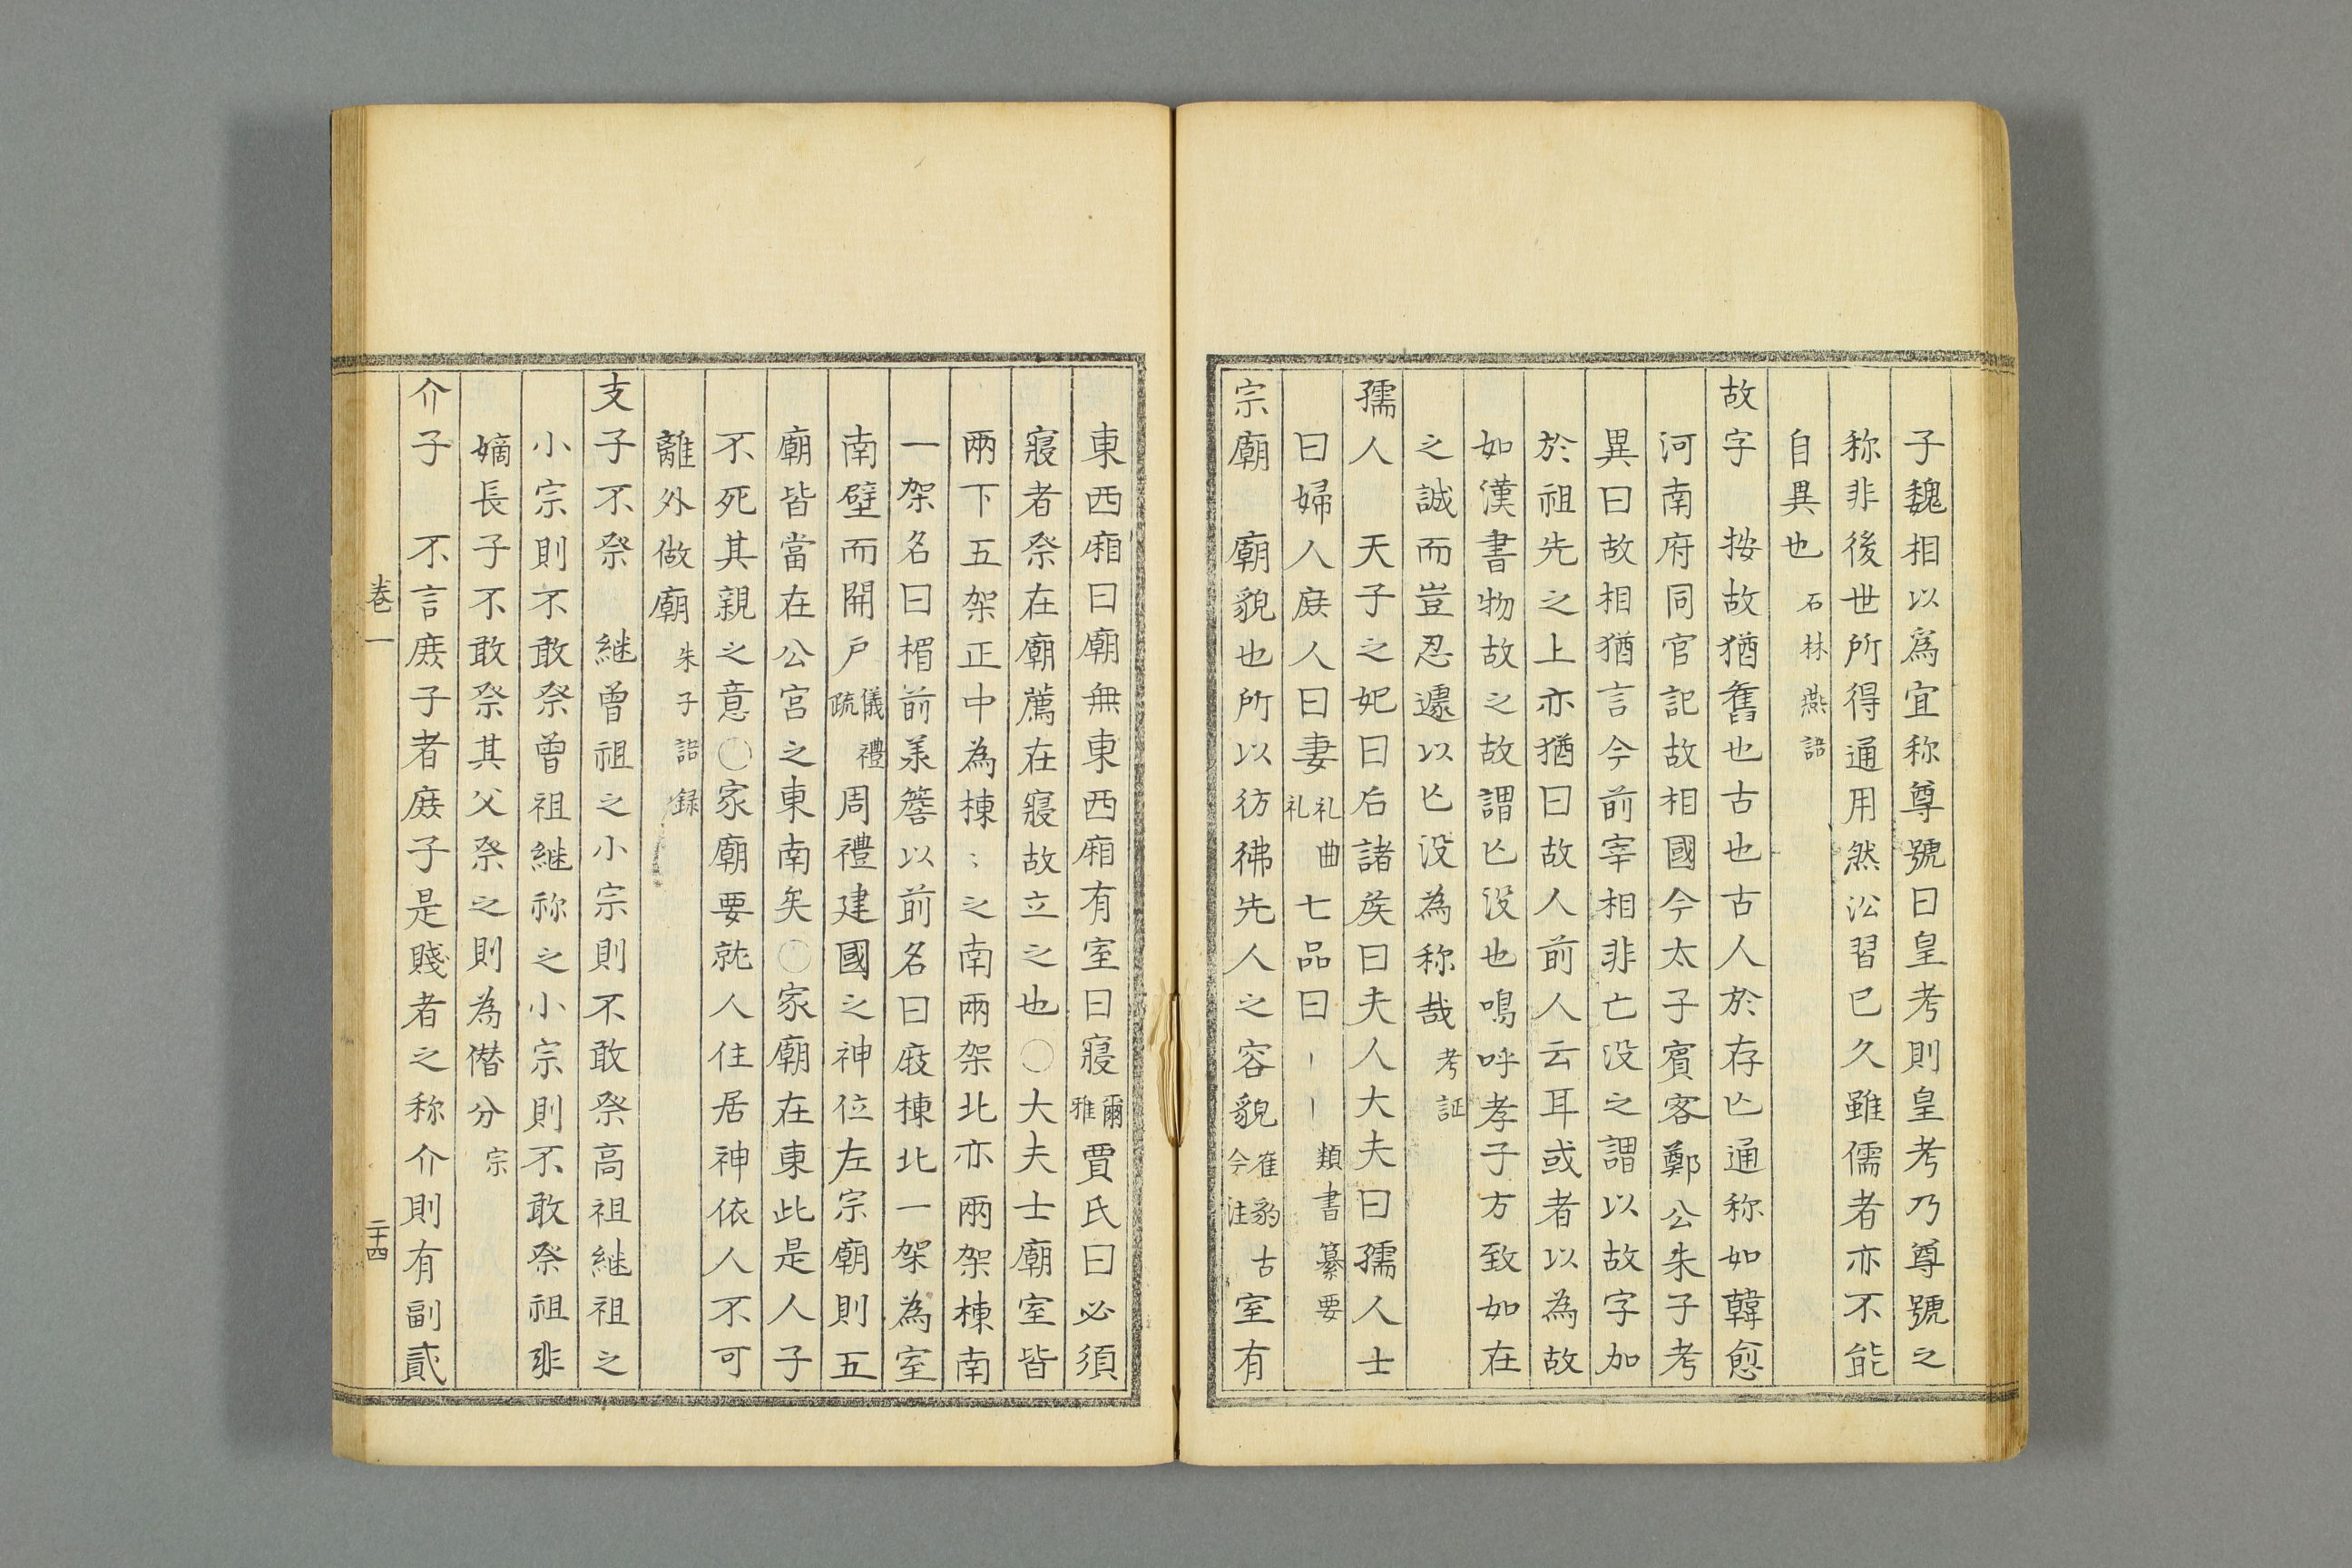 子魏相以爲宜称尊號曰皇考則皇考乃尊號之
称非後世所得通用然㳂習已久雖儒者亦不能
自異也 石林燕語
故字 按故猶舊也古也古人於存亾通称如韓愈
河南府同官記故相國今太子賓客鄭公朱子考
異曰故相猶言今前宰相非亡没之謂以故字加
於祖先之上亦猶曰故人前人云耳或者以為故
如漢書物故之故謂亾没也鳴呼孝子方致如在
之誠而豈忍遽以亾没為称哉 考証
孺人 天子之妃曰后諸矦曰夫人大夫曰孺人士
曰婦人庶人曰妻 礼曲礼 七品曰｜｜ 類書纂要
宗廟 廟貌也所以彷彿先人之容貌 崔豹古今注 室有
東西廂曰廟無東西廂有室曰寢 爾雅 賈氏曰必須
寢者祭在廟薦在寢故立之也〇大夫士廟室皆
兩下五架正中為棟〻之南兩架北亦兩架棟南
一架名曰楣前羕簷以前名曰庪棟北一架為室
南壁而開戶 儀禮疏 周禮建國之神位左宗廟則五
廟皆當在公宮之東南矣〇家廟在東此是人子
不死其親之意〇家廟要就人住居神依人不可
離外做廟 朱子語録
支子不祭 継曾祖之小宗則不敢祭高祖継祖之
小宗則不敢祭曾祖継祢之小宗則不敢祭祖非
嫡長子不敢祭其父祭之則為僭分 宗
介子 不言庶子者庶子是賤者之称介則有副貳
卷一
二十四